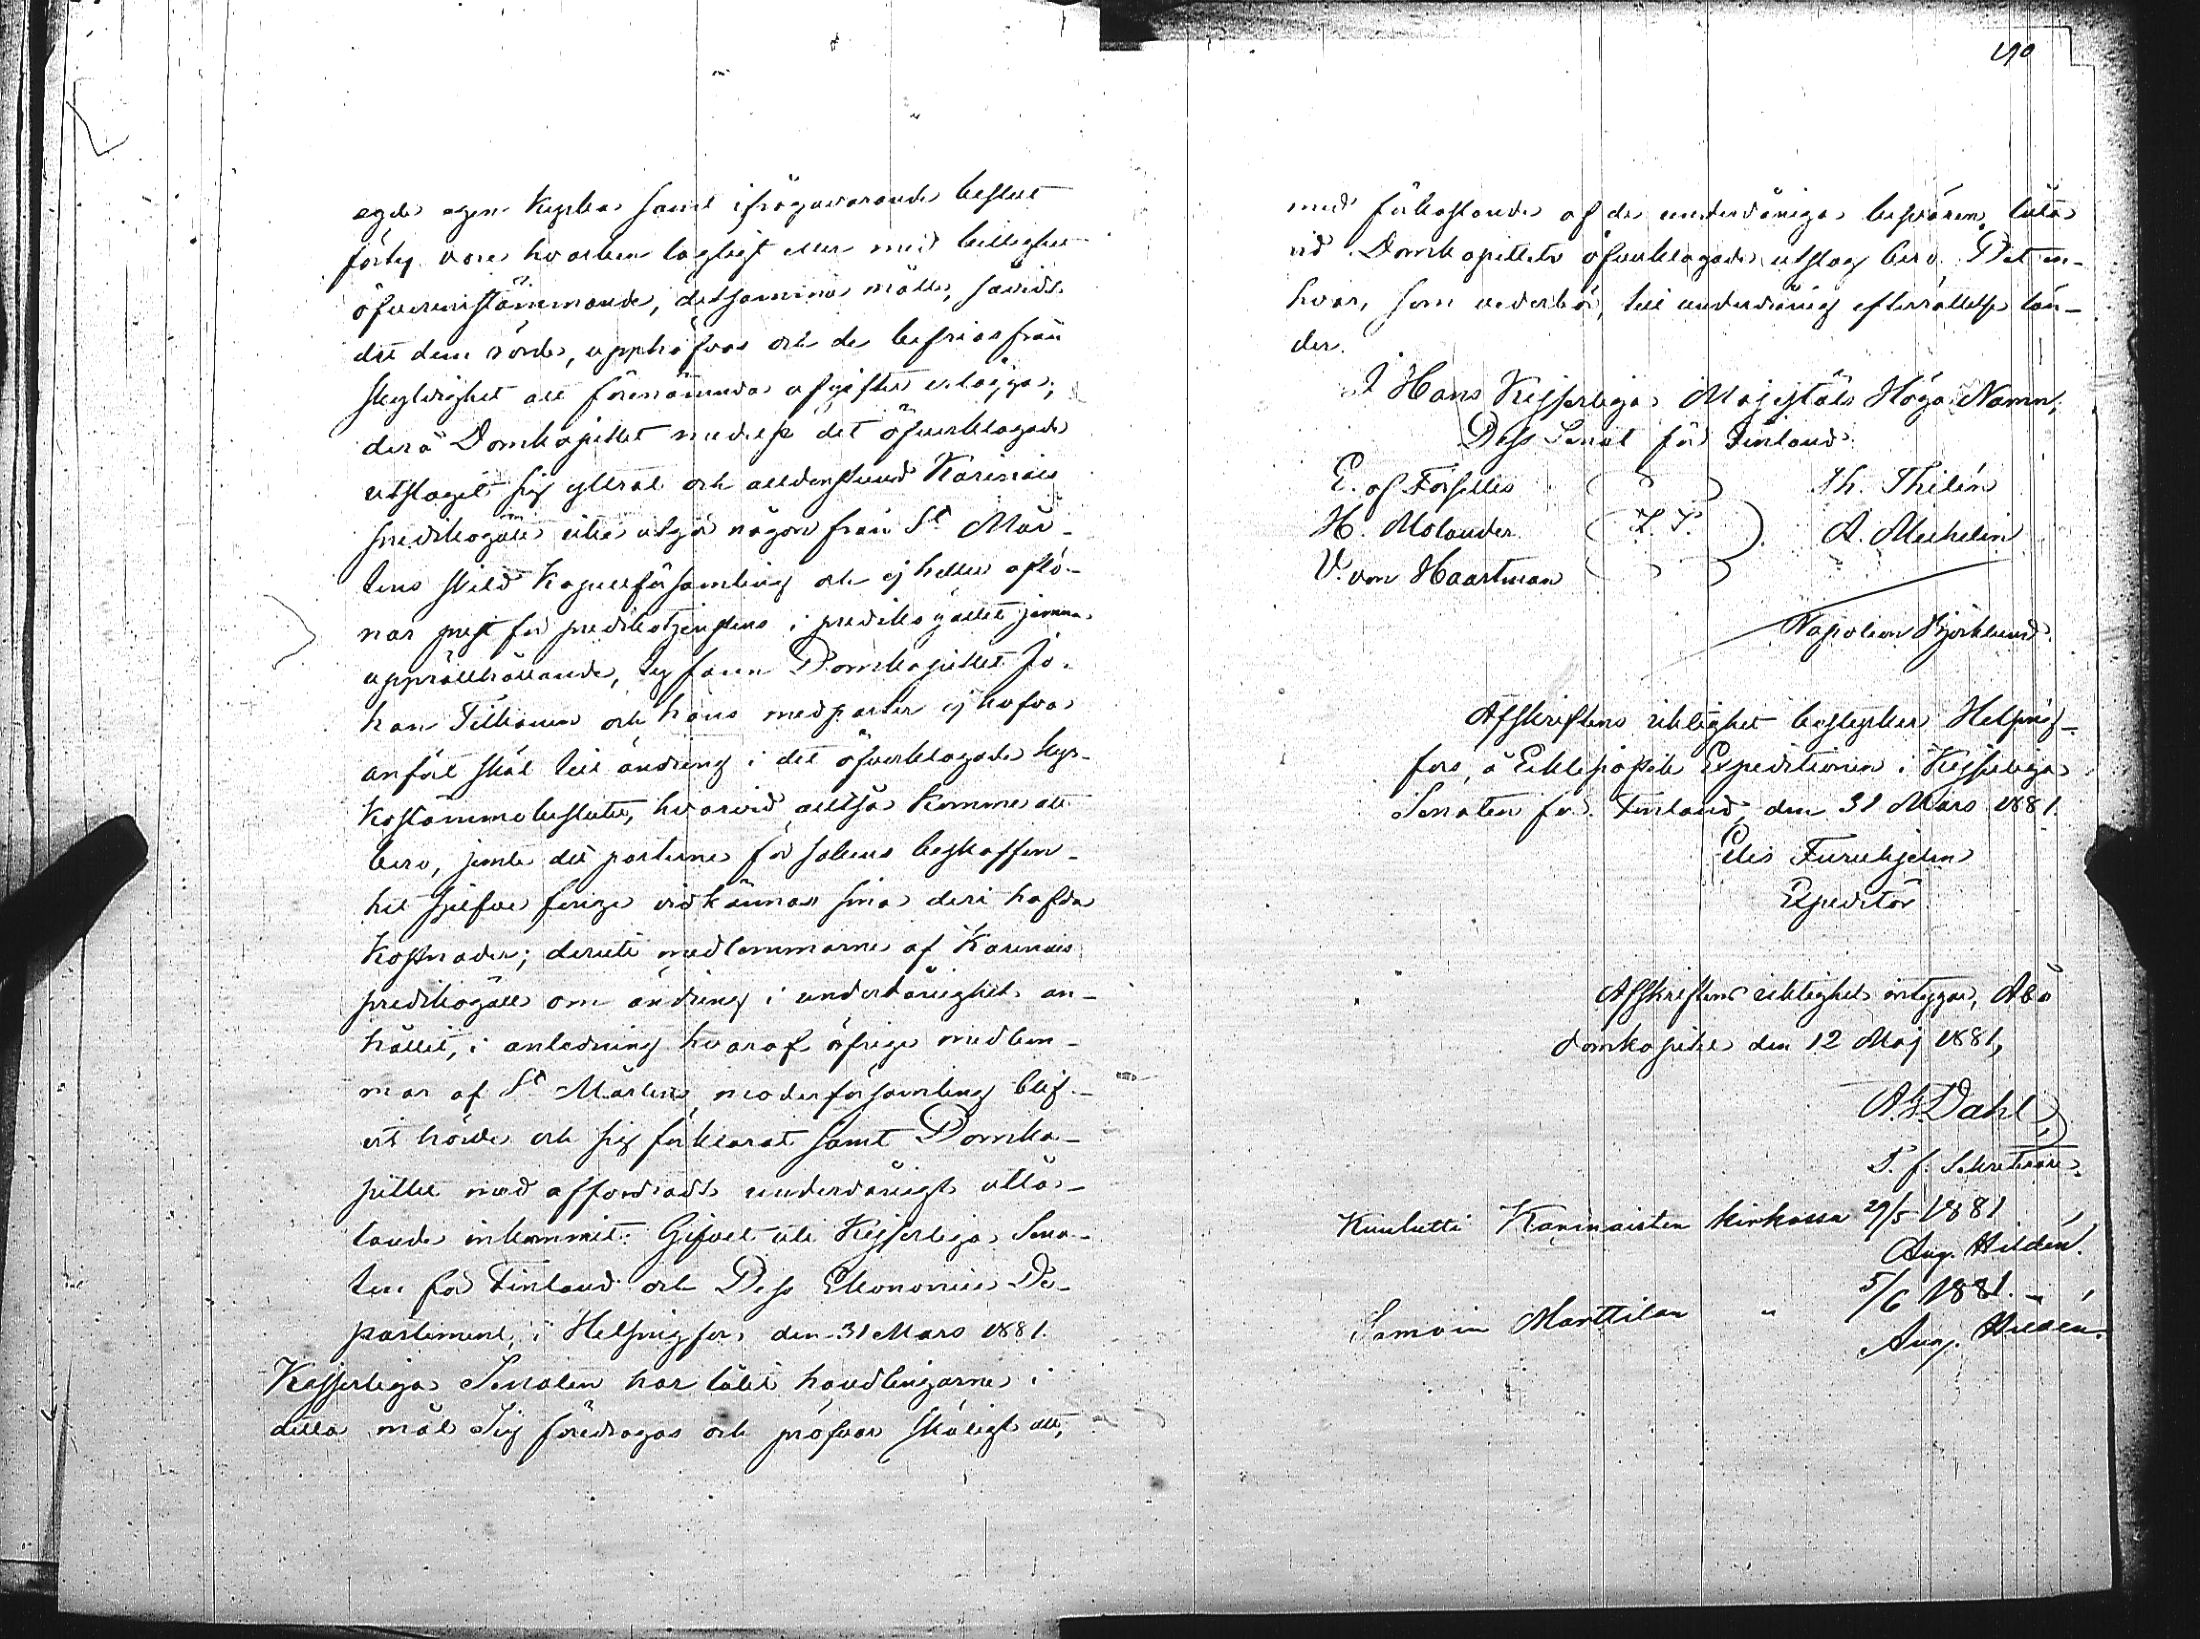 egde egen kyrka samt ifrågavarande beslut
förty vore hvarken lagligt eller med billighet
öfverensstämmande, detsamma måtte, såvidt
det dem rörde, upphäfvas och de befrias från
skyldighet att förenämnda afgifter erlägga;
derå Domkapitlet medelst det öfverklagade
utslaget sig yttrat och alldenstund Karinais
predikogäll icke utgör någon från St Mår-
tens skild kapellförsamling och ej heller aflö-
nar prest för predikotjenstens i predikogället jemna
upprätthållande, ty fann Domkapitlet Jo-
han Tilkanen och hans medparter ej hafva
anfört skäl till ändring i det öfverklagade kyr-
kostämmobeslutet, hvarvid alltså komme att
bero, jemte det parterne för sakens beskaffen-
het sjelfve finge vidkännas sina deri hafda
kostnader; deruti medlemmarne af Karinais
predikogäll om ändring i underdånighet an-
hållit, i anledning hvaraf öfrige medlem-
mar af St Mårtens moderförsamling blif-
vit hörde och sig förklarat samt Domka-
pitlet med affordradt underdånigt utlå-
tande inkommit. Gifvet uti Kejserliga Sena-
ten för Finland och Dess Ekonomie De-
partement, i Helsingfors den 31 Mars 1881.
Kejserliga Senaten har låtit handlingarne i
detta mål Sig föredragas och pröfvar skäligt att,
190
med förkastande af de underdåniga besvären, låta
vid Domkapitlets öfverklagade utslag bero. Det en-
hvar, som vederbör, till underdånig efterrättelse län-
der.
I Hans Kejserliga Majestäts Höga Namn,
Dess Senat för Finland:
E. af Forselles Th. Thilén
H. Molander L. S. A. Mechelin
V. von Haartman
Napoleon Björklund.
Afskriftens riktighet bestyrker Helsing-
fors, å Eklesiastik Expeditionen i Kejserliga
Senaten för Finland, den 31 Mars 1881.
Elis Furuhjelm
Expeditör
Afskriftens riktighet intygar, Åbo
domkapitel den 12 Maj 1881,
A. G. Dahl
T. f. Sekreterare.
Kuulutti Karinaisten kirkossa 29/5 1881
Aug. Hildén.
Samoin Marttilan " 5/6 1881.
Aug. Hildén.